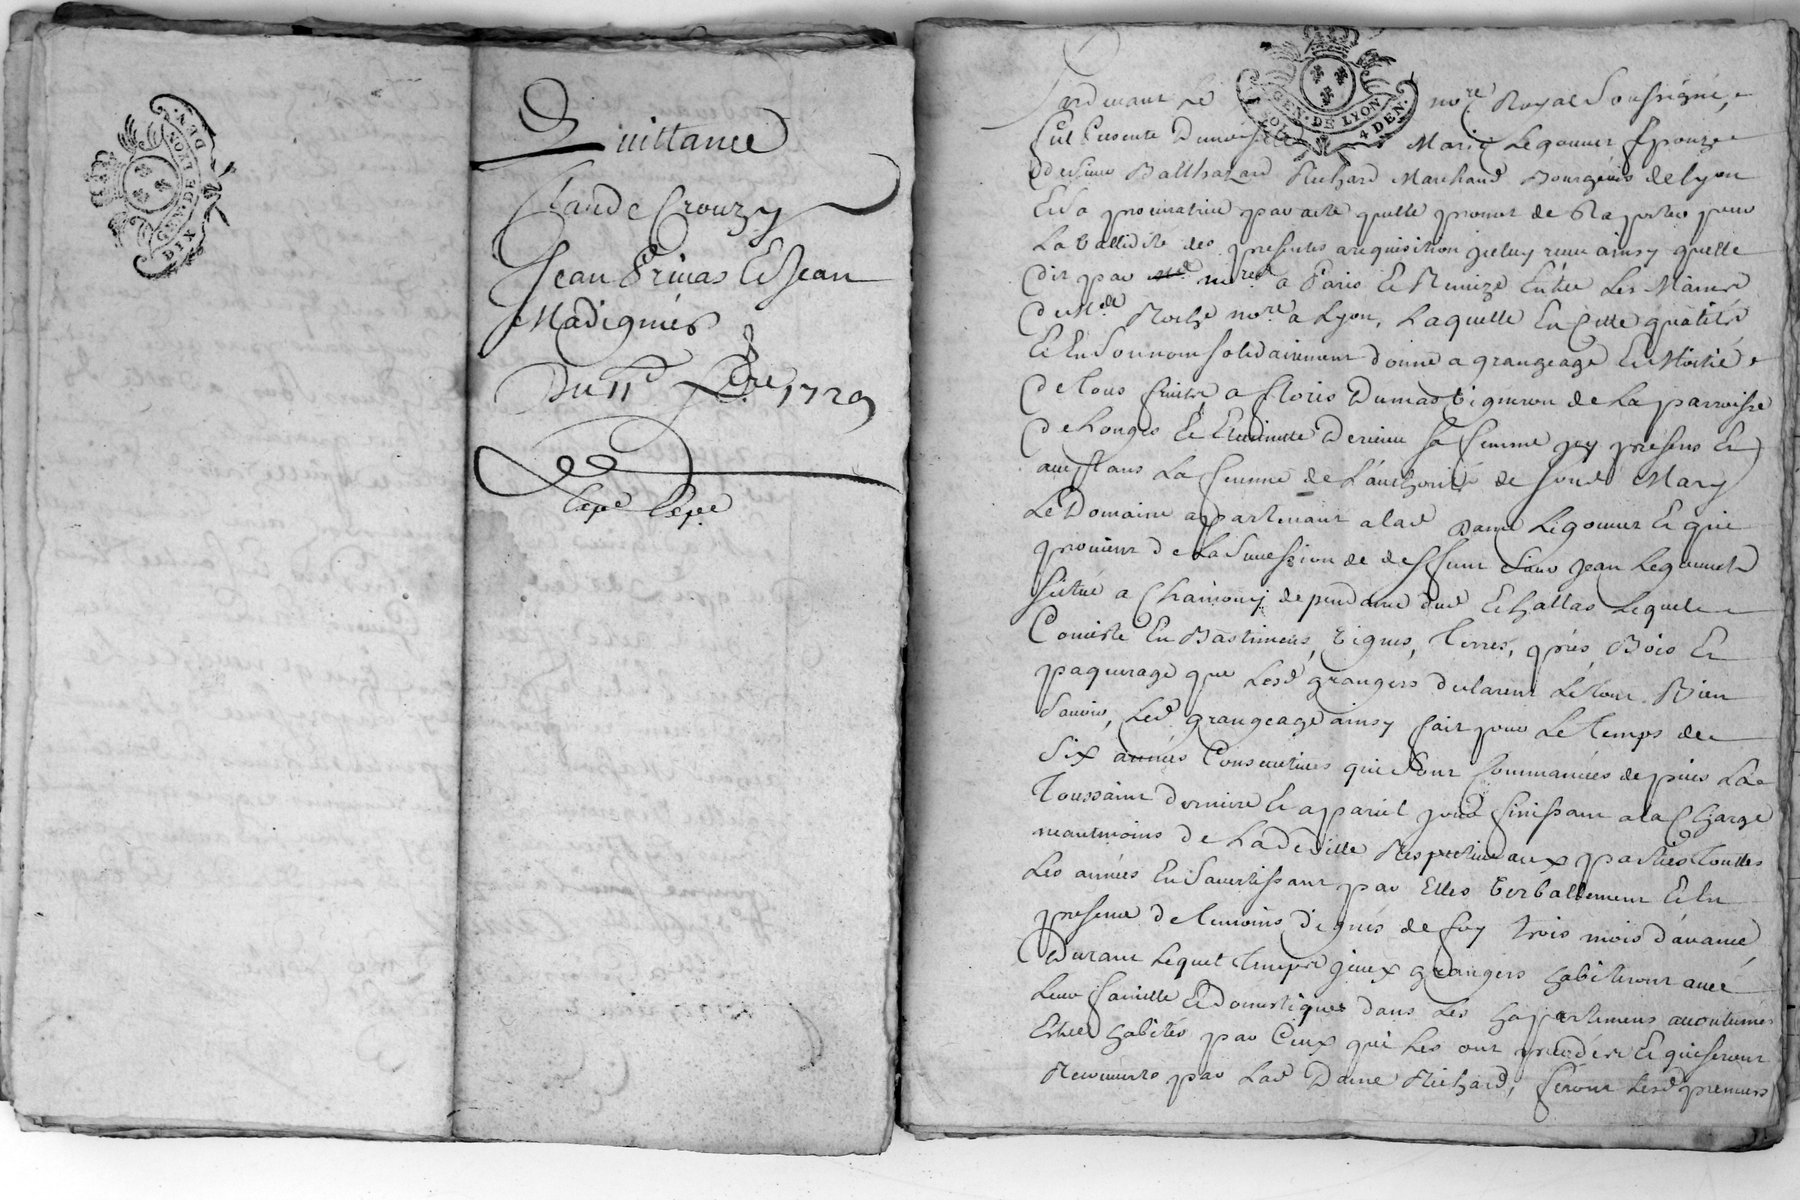 GEN. DE LYON
DIX DEN.
Quittance
Claude Crouzy
Jean Privas Et Jean
Madignier
Du 11e 1729
Expé Expé
GEN. DE LYON
4 DEN.
Pardevant Le nore Royal Soussigné,
fut Presente Marie Legouvet Epouze
de sieur Balthazard Richard Marchand Bourgeois de Lyon
Et sa procuratrice par acte quelle promet de Raporter pour
La vallidité des presentes a requisition jceluy reçu ainsy quelle
dit par nores a Paris Et Remize Entre Les Mains
de Me Roche nore a Lyon, Laquelle En Cette qualité
Et En Son nom solidairement donne a grangeage Et Moitié
de tous fruits a Floris Dumas Vigneron de La parroisse
de Longes Et sa femme jcy presens Et
acceptans La femme de L'authorité de sond Mary
Le Domaine appartenant a lad Dame Legouvet Et qui
provient de La Succession de deffunt Sieur Jean Legouvet
Situé a dependance dud Echallas Lequel
Consiste En Bastimens, vignes, Terres, prés, Bois Et
paquerage que Lesd grangers declarent Le tout Bien
Savoir, Led grangeage ainsy fait pour Le Temps de
Six années Consecutives qui sont Commancées depuis La
Toussaint derniere Et a pareil jour finissant a la Charge
neantmoins de La dédite Respective aux parties touttes
Les années En S'avertissant par Elles Verballement Et En
presence de temoins dignes de foy trois mois d'avance,
Durant Lequel temps jceux grangers habiteront avec
Leur famille Et Domestiques dans Les happartemens accoutumés
Estre habités par Ceux qui Les ont precédé Et qui seront
par Lad Dame Richard, Seront Lesd preneurs